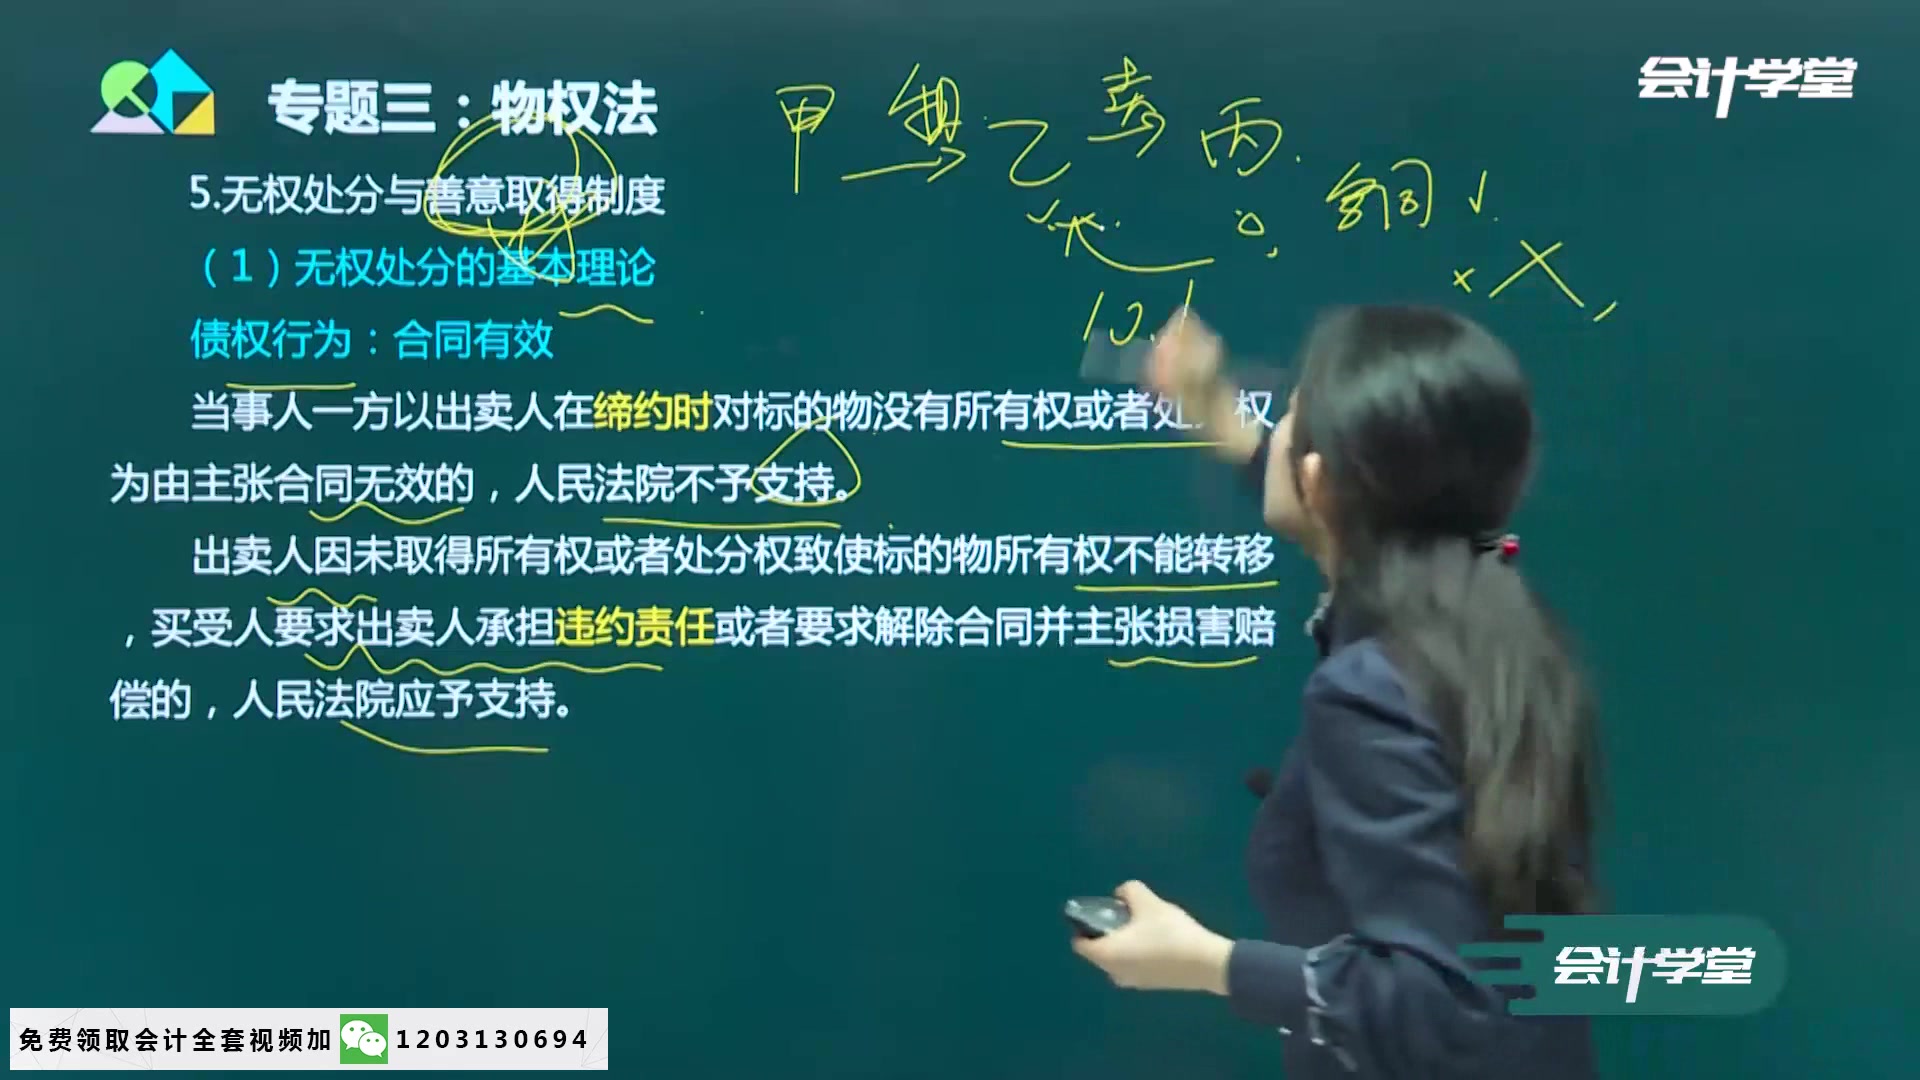 专题三：物权法
会计学堂
甲 租 乙 卖 丙
合同
10.1
5.无权处分与善意取得制度
（1）无权处分的基本理论
债权行为：合同有效
当事人一方以出卖人在缔约时对标的物没有所有权或者处 权
为由主张合同无效的，人民法院不予支持。
出卖人因未取得所有权或者处分权致使标的物所有权不能转移
，买受人要求出卖人承担违约责任或者要求解除合同并主张损害赔
偿的，人民法院应予支持。
会计学堂
免费领取会计全套视频加 1203130694